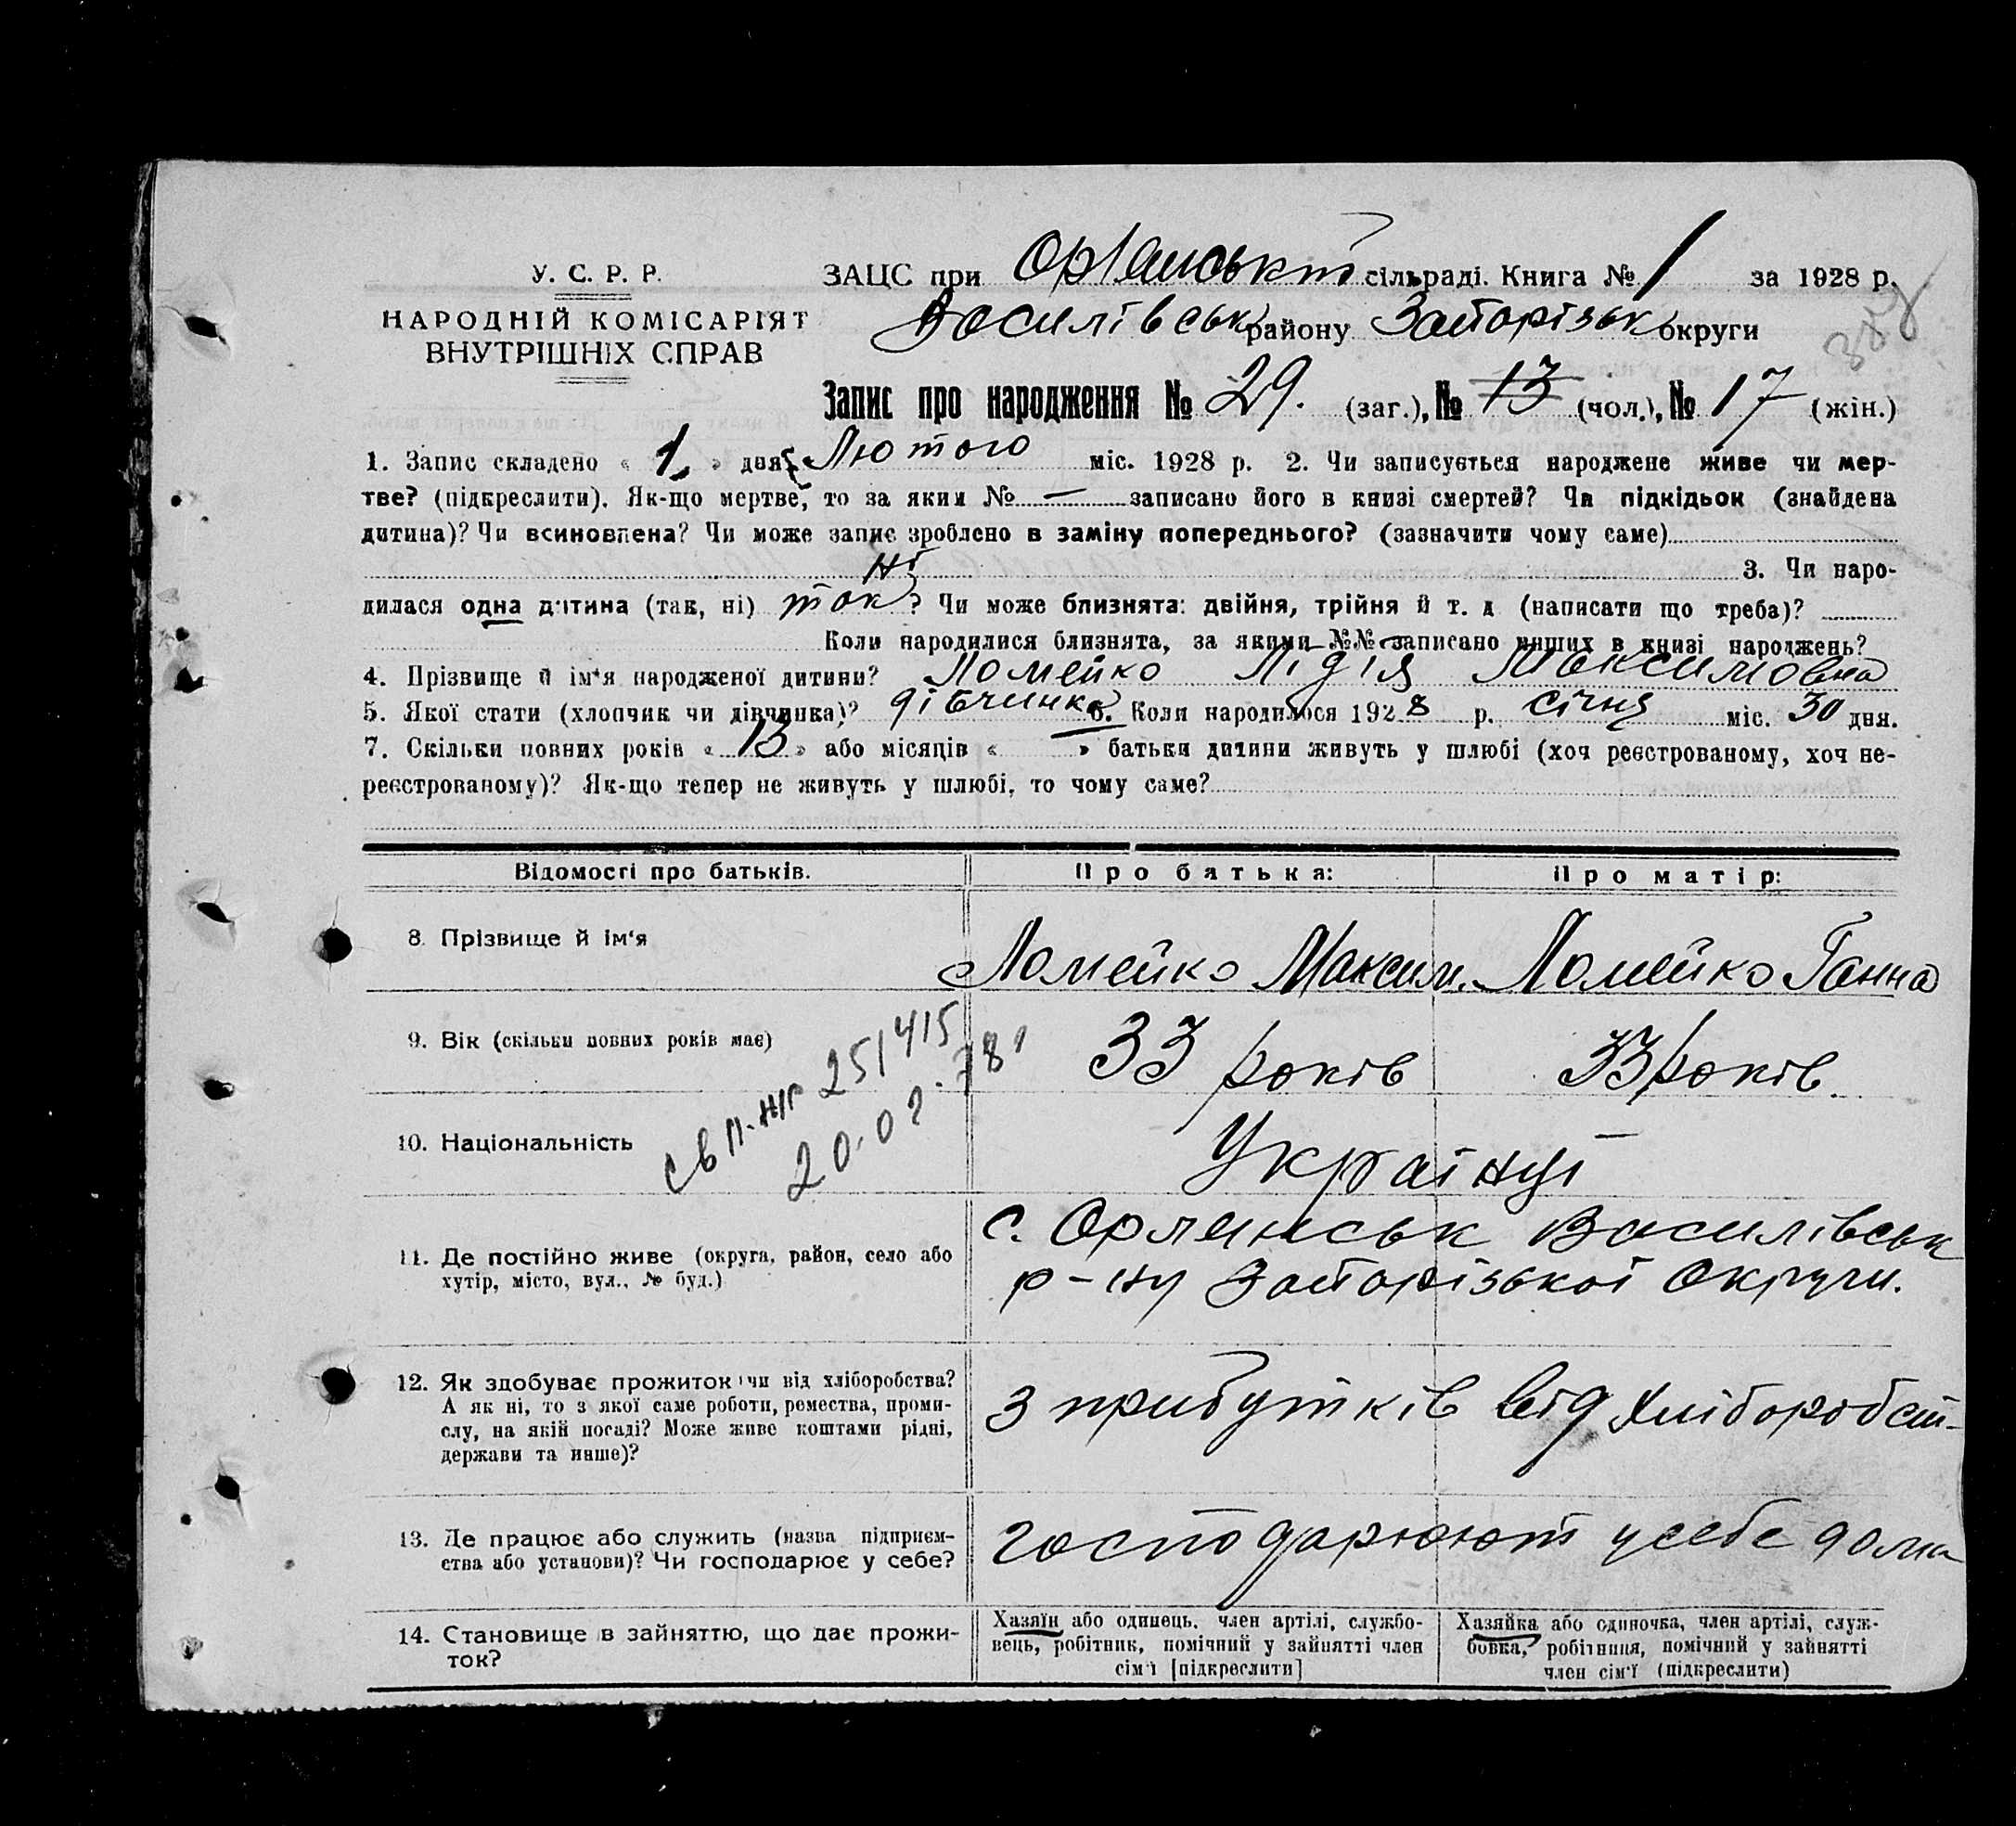 У. С. Р. Р.
НАРОДНІЙ КОМІСАРІЯТ
ВНУТРІШНІХ СПРАВ
ЗАЦС при Орлянськ сільраді. Книга № 1 за 1928 р.
Василівськ району Запорізьк округи
Запис про народження № 29. (заг.), № 13 (чол.), № 17 (жін.)
1. Запис складено « 1 » дня Лютого міс. 1928 р. 2. Чи записується народжене живе чи мер-
тве? (підкреслити). Як-що мертве, то за яким № — записано його в книзі смертей? Чи підкідьок (знайдена
дитина)? Чи всиновлена? Чи може запис зроблено в заміну попереднього? (зазначити чому саме)
Ні 3. Чи наро-
дилася одна дитина (так, ні) так? Чи може близнята: двійня, трійня й т. д (написати що треба)?
Коли народилися близнята, за якими №№ записано инших в книзі народжень?
4. Прізвище й ім'я народженої дитини? Ломейко Лідія Максимовна
5. Якої стати (хлопчик чи дівчинка)? дівчинка 6. Коли народилося 1928 р. січня міс. 30 дня.
7. Скільки повних років « 13 » або місяців « » батьки дитини живуть у шлюбі (хоч реєстрованому, хоч не-
реєстрованому)? Як-що тепер не живуть у шлюбі, то чому саме?
Відомості про батьків. Про батька: Про матір:
8. Прізвище й ім'я Ломейко Максим. Ломейко Ганна
9. Вік (скільки повних років має) 33 років 33 років.
св п. жг 251415
20.02.78
10. Національність Українці
11. Де постійно живе (округа, район, село або
хутір, місто, вул., № буд.)
с. Орлянськ Василівськ
р-ну Запорізької Округи.
12. Як здобуває прожиток чи від хліборобства?
А як ні, то з якої саме роботи, ремества, проми-
слу, на якій посаді? Може живе коштами рідні,
держави та инше)?
з прибутків від хліборобст-
13. Де працює або служить (назва підприєм-
ства або установи)? Чи господарює у себе?
господарюют у себе дома
14. Становище в зайняттю, що дає прожи-
ток?
Хазяїн або одинець, член артілі, службо-
вець, робітник, помічний у зайнятті член
сім'ї [підкреслити]
Хазяйка або одиночка, член артілі, служ-
бовка, робітниця, помічний у зайнятті
член сім'ї (підкреслити)